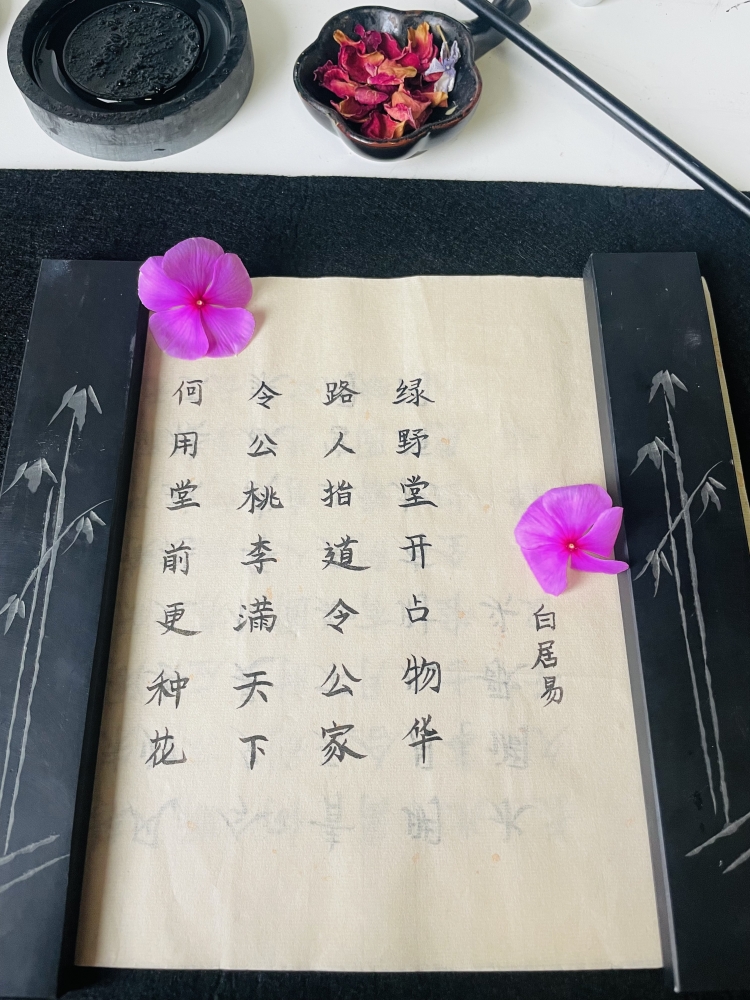 白居易
绿野堂开占物华
路人指道令公家
令公桃李满天下
何用堂前更种花